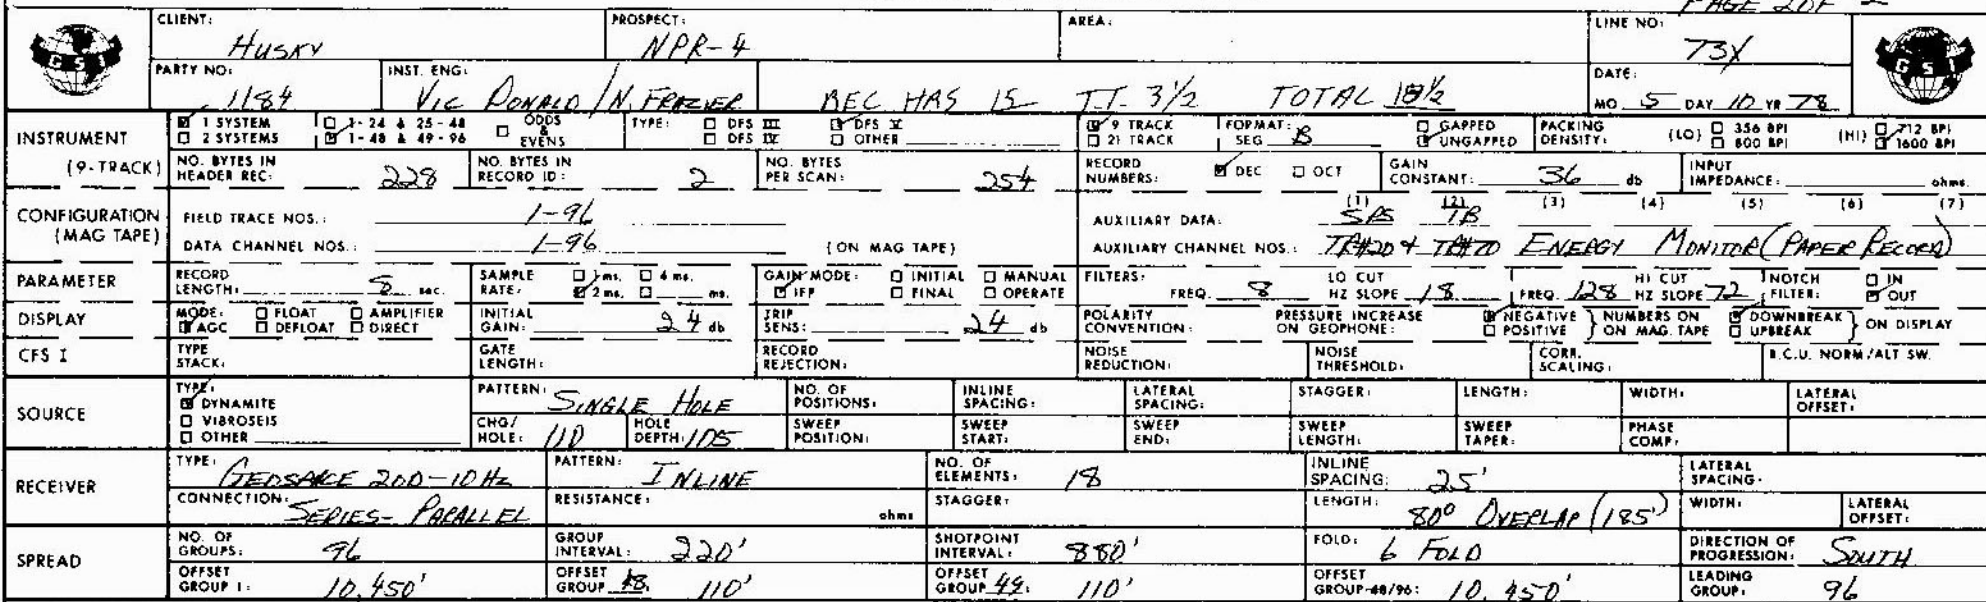 PAGE 2 OF 2
CLIENT: HUSKY PROSPECT: NPR-4 AREA: LINE NO: 73X
GSI GSI
PARTY NO: 1184 INST. ENG: VIC DONALD / N. FRAZIER REC HAS 15 T.T. 3½ TOTAL 18½ DATE: MO 5 DAY 10 YR 78
INSTRUMENT 1 SYSTEM 1-24 & 25-48 ODDS & EVENS TYPE: DFS III DFS V 9 TRACK FORMAT: GAPPED PACKING DENSITY: (LO) 356 BPI (HI) 712 BPI
2 SYSTEMS 1-48 & 49-96 DFS IV OTHER 21 TRACK SEG B UNGAPPED 800 BPI 1600 BPI
(9-TRACK) NO. BYTES IN HEADER REC: 228 NO. BYTES IN RECORD ID: 2 NO. BYTES PER SCAN: 254 RECORD NUMBERS: DEC OCT GAIN CONSTANT: 36 db INPUT IMPEDANCE: ohms.
CONFIGURATION (MAG TAPE) FIELD TRACE NOS.: 1-96 AUXILIARY DATA: (1) SPS (2) TB (3) (4) (5) (6) (7)
DATA CHANNEL NOS.: 1-96 (ON MAG TAPE) AUXILIARY CHANNEL NOS.: TR#20 & TR#70 ENERGY MONITOR (PAPER RECORD)
PARAMETER RECORD LENGTH: 5 sec. SAMPLE RATE: 1 ms. 4 ms. 2 ms. ms. GAIN MODE: INITIAL MANUAL IFP FINAL OPERATE FILTERS: FREQ. 8 LO CUT HZ SLOPE 18 FREQ. 128 HI CUT HZ SLOPE 72 NOTCH FILTER: IN OUT
DISPLAY MODE: FLOAT AMPLIFIER AGC DEFLOAT DIRECT INITIAL GAIN: 24 db TRIP SENS: 24 db POLARITY CONVENTION: PRESSURE INCREASE ON GEOPHONE: NEGATIVE POSITIVE } NUMBERS ON ON MAG. TAPE DOWNBREAK UPBREAK } ON DISPLAY
CFS I TYPE STACK: GATE LENGTH: RECORD REJECTION: NOISE REDUCTION: NOISE THRESHOLD: CORR. SCALING: R.C.U. NORM/ALT SW.
SOURCE TYPE: DYNAMITE VIBROSEIS OTHER PATTERN: SINGLE HOLE NO. OF POSITIONS: INLINE SPACING: LATERAL SPACING: STAGGER: LENGTH: WIDTH: LATERAL OFFSET:
CHG/HOLE: 110 HOLE DEPTH: 105 SWEEP POSITION: SWEEP START: SWEEP END: SWEEP LENGTH: SWEEP TAPER: PHASE COMP:
RECEIVER TYPE: GEOSPACE 20D-10Hz PATTERN: INLINE NO. OF ELEMENTS: 18 INLINE SPACING: 25' LATERAL SPACING:
CONNECTION: SERIES-PARALLEL RESISTANCE: ohms STAGGER: LENGTH: 80° OVERLAP (185') WIDTH: LATERAL OFFSET:
SPREAD NO. OF GROUPS: 96 GROUP INTERVAL: 220' SHOTPOINT INTERVAL: 880' FOLD: 6 FOLD DIRECTION OF PROGRESSION: SOUTH
OFFSET GROUP 1: 10,450' OFFSET GROUP 48: 110' OFFSET GROUP 49: 110' OFFSET GROUP-48/96: 10,450' LEADING GROUP: 96